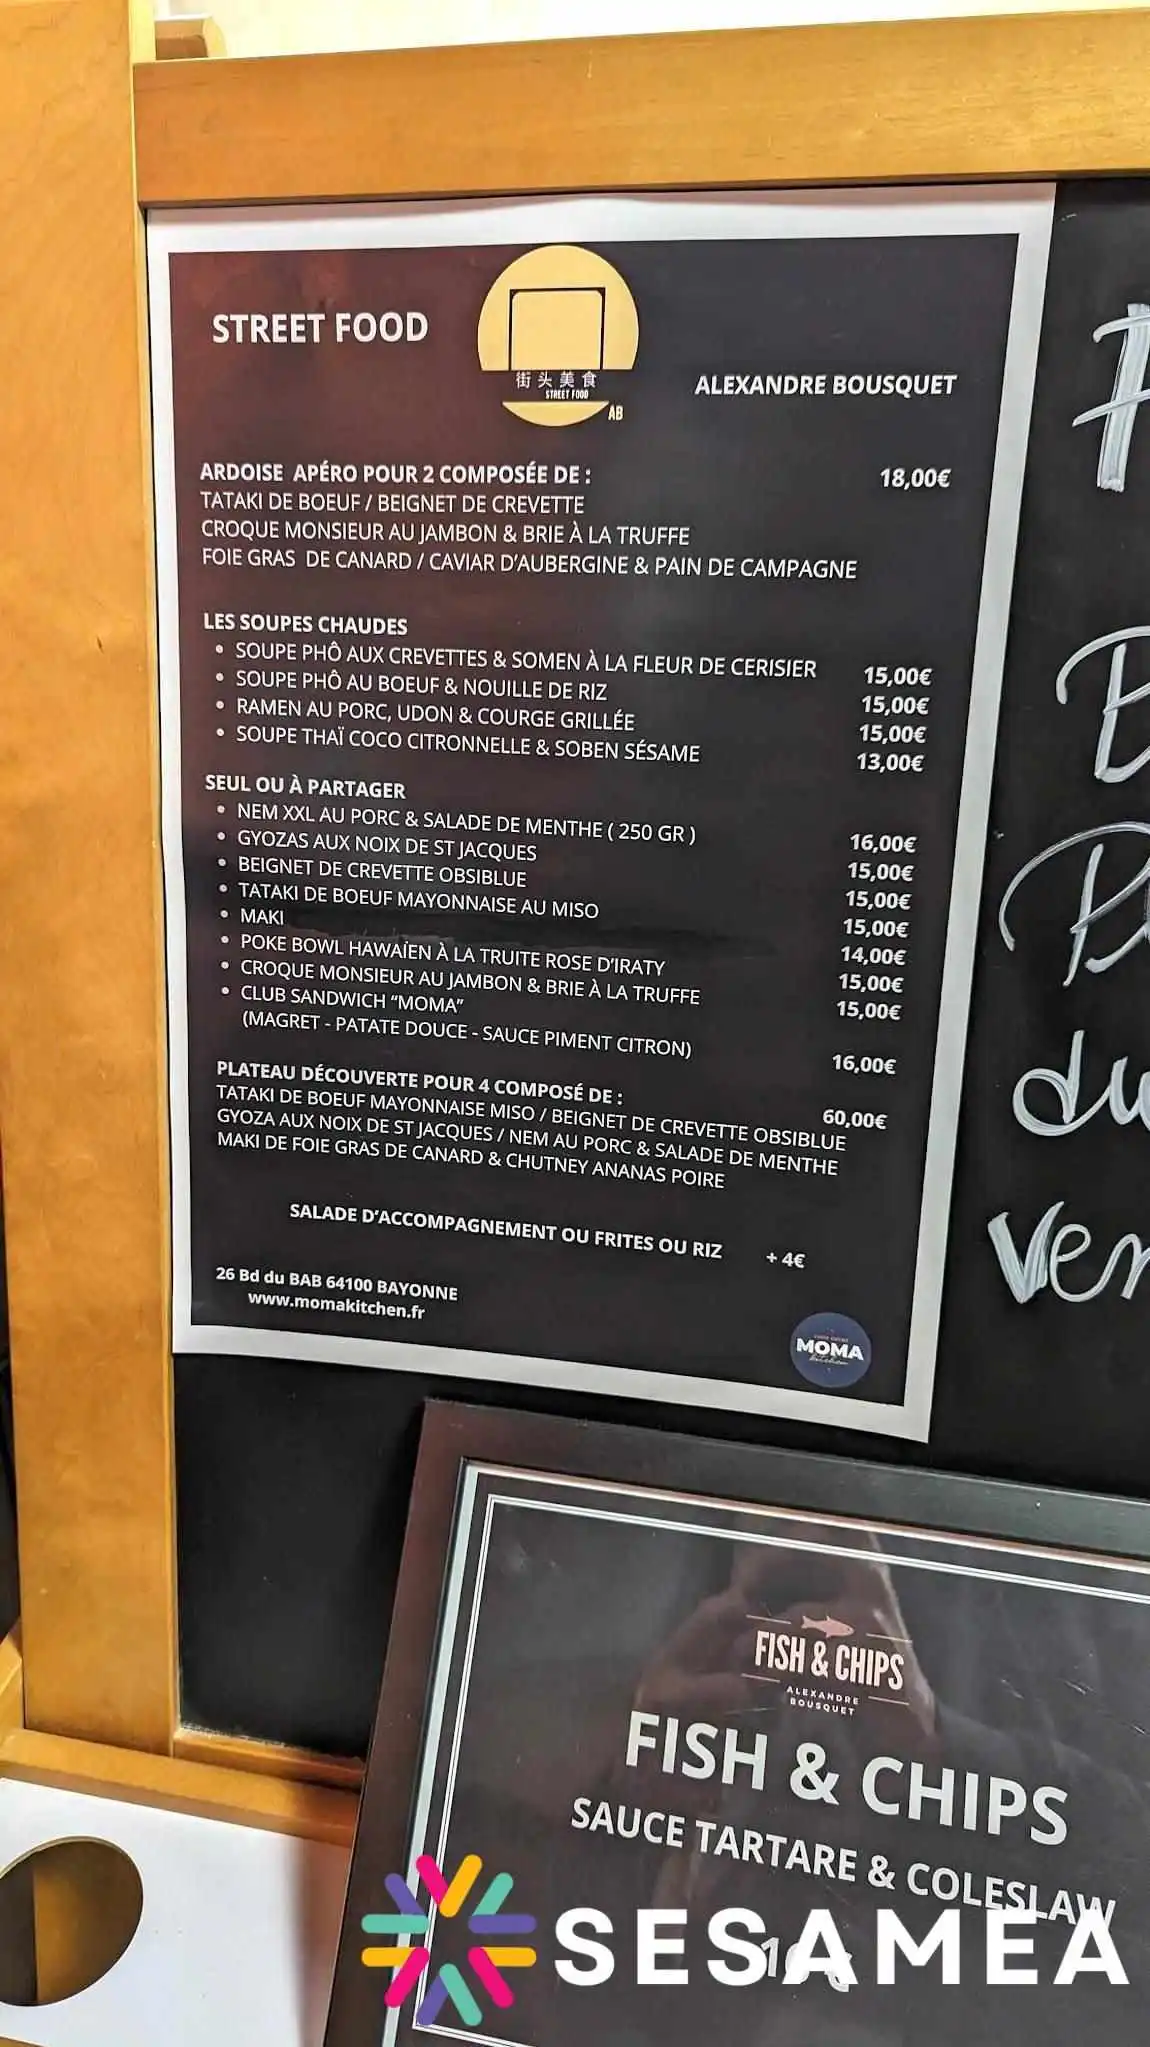 STREET FOOD
街头美食
STREET FOOD
AB
ALEXANDRE BOUSQUET
ARDOISE APÉRO POUR 2 COMPOSÉE DE : 18,00€
TATAKI DE BOEUF / BEIGNET DE CREVETTE
CROQUE MONSIEUR AU JAMBON & BRIE À LA TRUFFE
FOIE GRAS DE CANARD / CAVIAR D'AUBERGINE & PAIN DE CAMPAGNE
LES SOUPES CHAUDES
• SOUPE PHÔ AUX CREVETTES & SOMEN À LA FLEUR DE CERISIER 15,00€
• SOUPE PHÔ AU BOEUF & NOUILLE DE RIZ 15,00€
• RAMEN AU PORC, UDON & COURGE GRILLÉE 15,00€
• SOUPE THAÏ COCO CITRONNELLE & SOBEN SÉSAME 13,00€
SEUL OU À PARTAGER
• NEM XXL AU PORC & SALADE DE MENTHE ( 250 GR ) 16,00€
• GYOZAS AUX NOIX DE ST JACQUES 15,00€
• BEIGNET DE CREVETTE OBSIBLUE 15,00€
• TATAKI DE BOEUF MAYONNAISE AU MISO 15,00€
• MAKI 14,00€
• POKE BOWL HAWAÏEN À LA TRUITE ROSE D'IRATY 15,00€
• CROQUE MONSIEUR AU JAMBON & BRIE À LA TRUFFE 15,00€
• CLUB SANDWICH "MOMA"
(MAGRET - PATATE DOUCE - SAUCE PIMENT CITRON) 16,00€
PLATEAU DÉCOUVERTE POUR 4 COMPOSÉ DE : 60,00€
TATAKI DE BOEUF MAYONNAISE MISO / BEIGNET DE CREVETTE OBSIBLUE
GYOZA AUX NOIX DE ST JACQUES / NEM AU PORC & SALADE DE MENTHE
MAKI DE FOIE GRAS DE CANARD & CHUTNEY ANANAS POIRE
SALADE D'ACCOMPAGNEMENT OU FRITES OU RIZ + 4€
26 Bd du BAB 64100 BAYONNE
www.momakitchen.fr
MOMA
kitchen
du
FISH & CHIPS
ALEXANDRE
BOUSQUET
FISH & CHIPS
SAUCE TARTARE & COLESLAW
SESAMEA